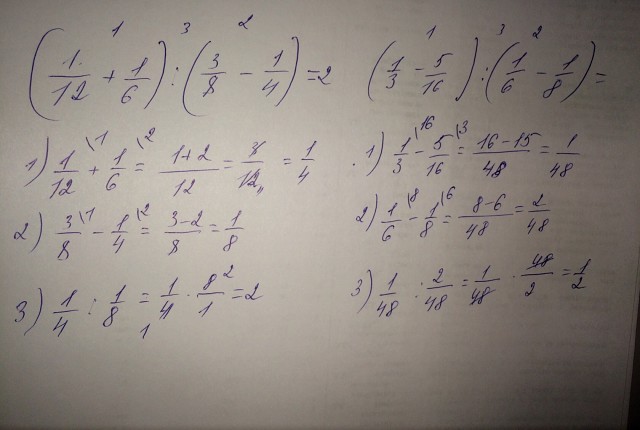 1 3 2
(1/12 + 1/6) : (3/8 − 1/4) = 2
1) 1/12 \1 + 1/6 \2 = 1+2/12 = 3/12 = 1/4
2) 3/8 \1 − 1/4 \2 = 3−2/8 = 1/8
3) 1/4 : 1/8 = 1/4 1 · 8/1 2 = 2
1 3 2
(1/3 − 5/16) : (1/6 − 1/8) =
1) 1/3 \16 − 5/16 \3 = 16−15/48 = 1/48
2) 1/6 \8 − 1/8 \6 = 8−6/48 = 2/48
3) 1/48 : 2/48 = 1/48 · 48/2 = 1/2